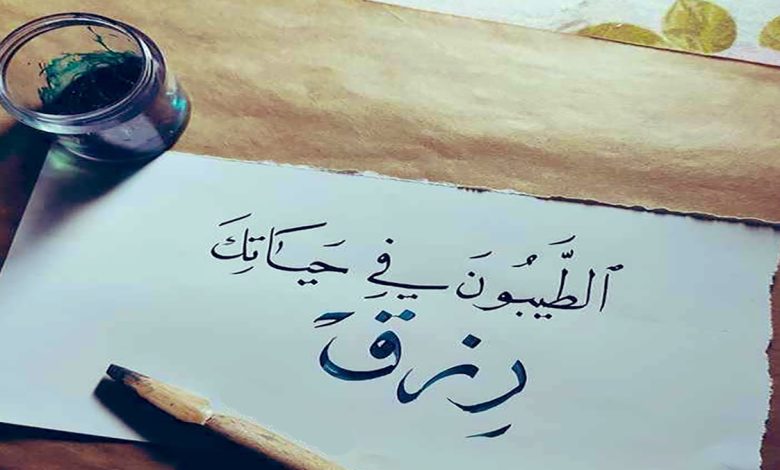 الطَّيبُونَ في حَيَاتِكَ
رِزقً